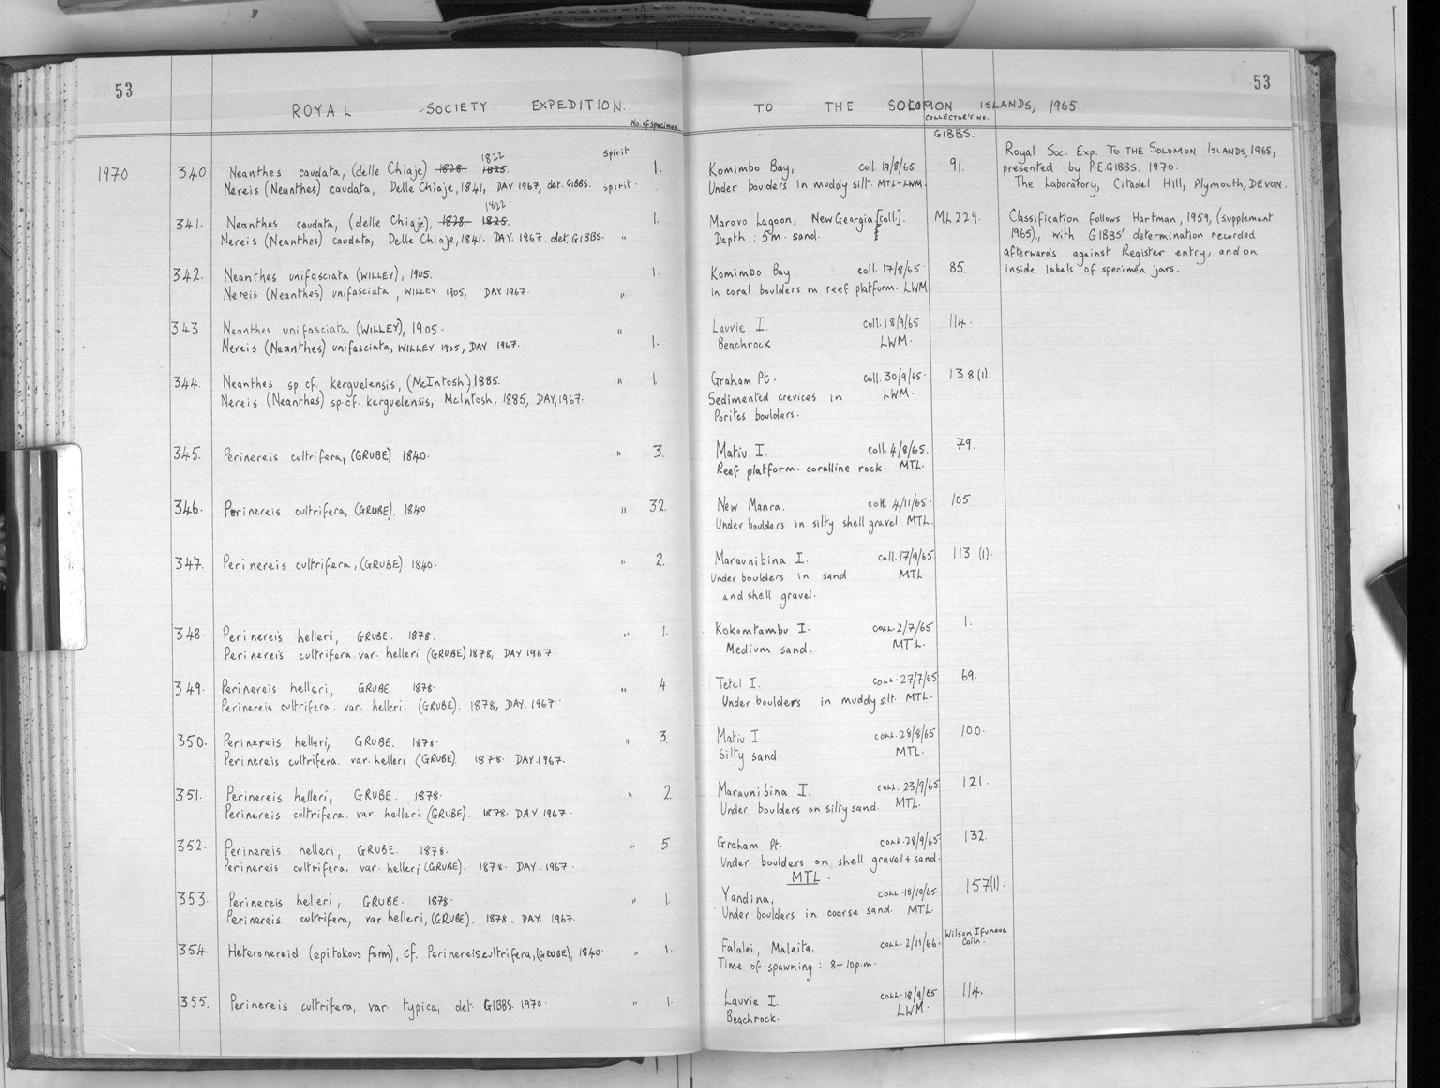 53
53
ROYAL SOCIETY EXPEDITION. TO THE SOLOMON ISLANDS, 1965
No. of specimens.
COLLECTOR'S NO.
GIBBS.
1970 340 Neanthes caudata, (delle Chiaje) 1828 1825. 1822 spirit 1. Komimbo Bay, coll. 19/8/65 91.
Nereis (Neanthes) caudata, Delle Chiaje, 1841, DAY 1967, det. GIBBS. spirit. Under bouders in muddy silt. MTL-LWM.
Royal Soc. Exp. To THE SOLOMON ISLANDS, 1965,
presented by P.E. GIBBS. 1970.
The Laboratory, Citadel Hill, Plymouth, DEVON.
341. Neanthes caudata, (delle Chiaje), 1828 1825. 1822 1. Marovo Lagoon, New Georgia [coll]. ML 229.
Nereis (Neanthes) caudata, Delle Chiaje, 1841. DAY. 1967. det. GIBBS. " Depth : 5m. sand.
Classification follows Hartman, 1959, (supplement
1965), with GIBBS' determination recorded
afterwards against Register entry, and on
inside labels of specimen jars.
342. Neanthes unifasciata (WILLEY), 1905. 1. Komimbo Bay. coll. 17/8/65 85.
Nereis (Neanthes) unifasciata, WILLEY 1905, DAY 1967. " In coral boulders on reef platform. LWM
343 Neanthes unifasciata (WILLEY), 1905. " Lauvie I. coll. 18/9/65 114.
Nereis (Neanthes) unifasciata, WILLEY 1905, DAY 1967. 1. Beachrock LWM.
344. Neanthes sp cf. kerguelensis, (McIntosh) 1885. " 1. Graham Pt. coll. 30/9/65. 138(1).
Nereis (Neanthes) sp. cf. kerguelensis, McIntosh. 1885, DAY, 1967. Sedimented crevices in LWM.
Porites boulders.
345. Perinereis cultrifera, (GRUBE) 1840. " 3. Matiu I. coll. 4/8/65. 79.
Reef platform. coralline rock MTL.
346. Perinereis cultrifera, (GRUBE). 1840 " 32. New Manra. coll. 4/11/65. 105
Under boulders in silty shell gravel MTL.
347. Perinereis cultrifera, (GRUBE) 1840. " 2. Maraunibina I. coll. 17/9/65 113 (1).
Under boulders in sand MTL
and shell gravel.
348. Perinereis helleri, GRUBE. 1878. " 1. Kokomtambu I. COLL. 2/7/65 1.
Perinereis cultrifera. var. helleri (GRUBE) 1878, DAY 1967. Medium sand. MTL.
349. Perinereis helleri, GRUBE. 1878. " 4 Tetel I. COLL. 27/7/65 69.
Perinereis cultrifera. var. helleri. (GRUBE). 1878, DAY. 1967. Under boulders in muddy silt. MTL.
350. Perinereis helleri, GRUBE. 1878. " 3. Matiu I COLL. 28/8/65 100.
Perinereis cultrifera. var. helleri (GRUBE). 1878. DAY. 1967. Silty sand. MTL.
351. Perinereis helleri, GRUBE. 1878. " 2. Maraunibina I. COLL. 23/9/65 121.
Perinereis cultrifera. var. helleri (GRUBE). 1878. DAY 1967. Under boulders on silty sand. MTL.
352. Perinereis helleri, GRUBE. 1878. " 5 Graham Pt. COLL. 28/9/65. 132.
Perinereis cultrifera, var. helleri (GRUBE). 1878. DAY. 1967. Under boulders on shell gravel + sand.
MTL.
353. Perinereis helleri, GRUBE. 1878. " 1. Yandina, COLL. 18/10/65 157(1).
Perinereis cultrifera, var. helleri, (GRUBE). 1878. DAY. 1967. Under boulders in coarse sand. MTL.
354. Heteronereid (epitokous form), cf. Perinereis cultrifera, (GRUBE), 1840. " 1. Falalei, Malaita. COLL. 2/11/66. Wilson Ifunaoa Colln.
Time of spawning : 8-10p.m.
355. Perinereis cultrifera, var. typica, det. GIBBS. 1970. " 1. Lauvie I. COLL. 18/9/65 114.
Beachrock. LWM.